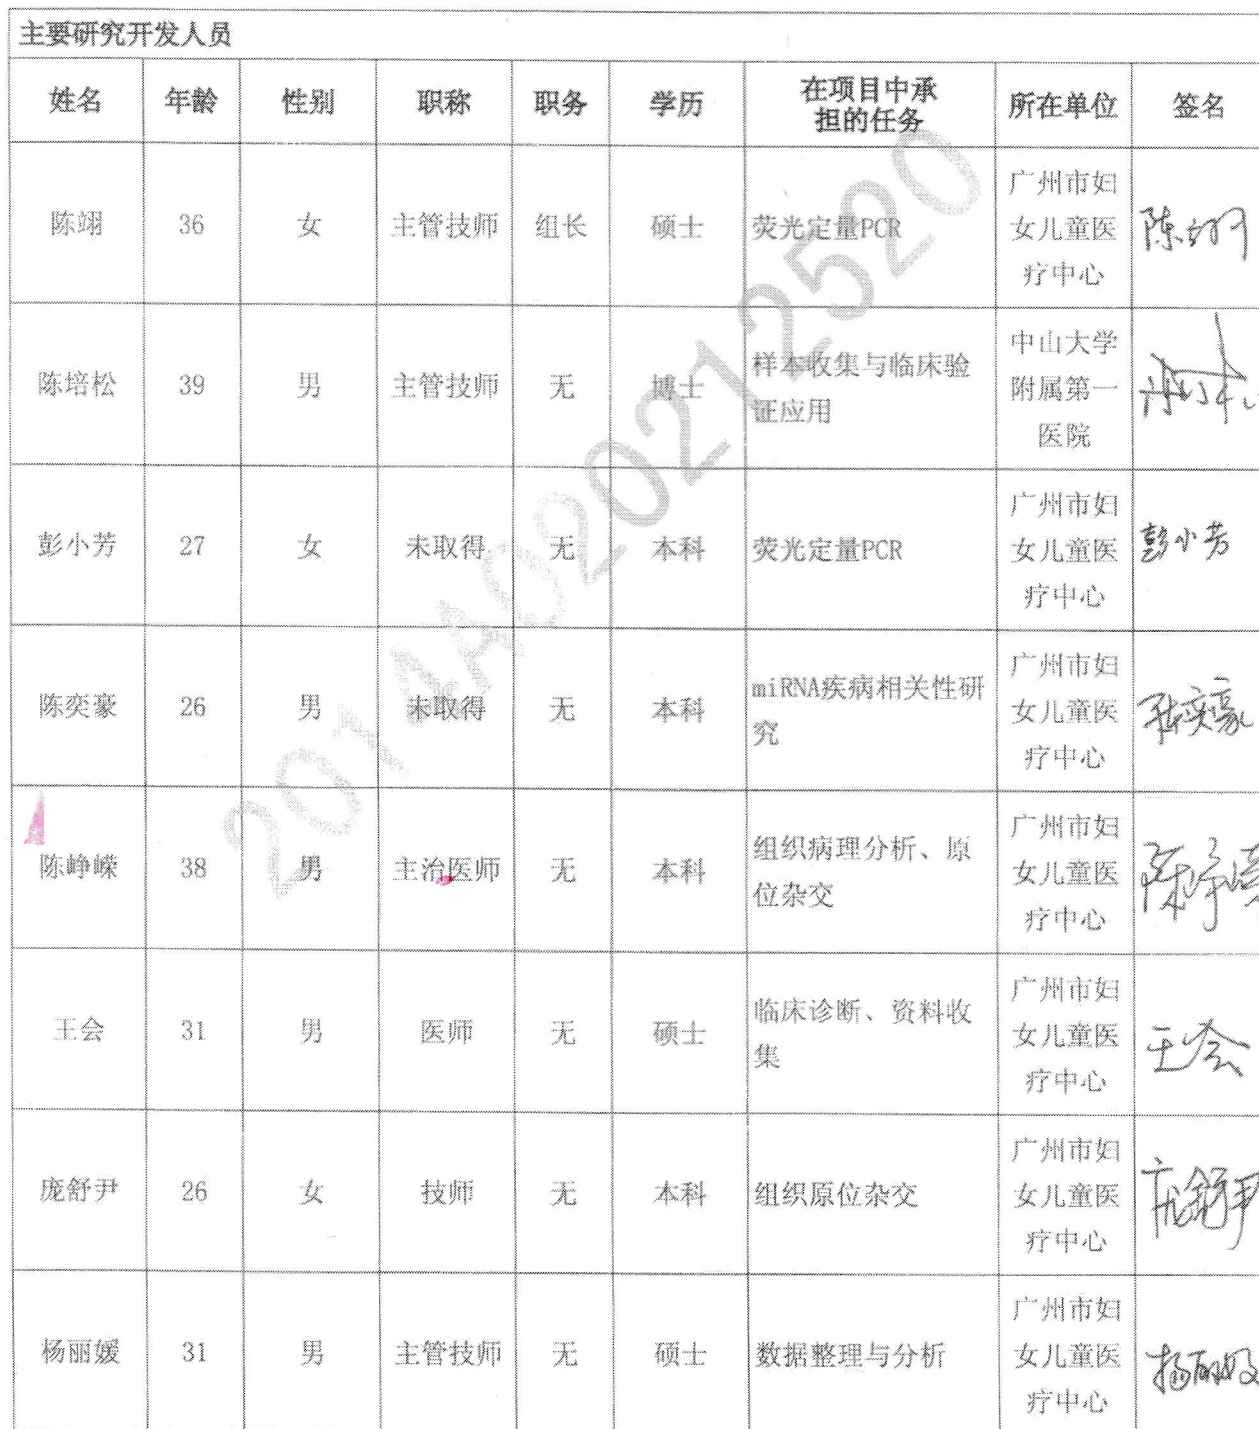 主要研究开发人员
姓名 年龄 性别 职称 职务 学历 在项目中承 所在单位 签名
担的任务
陈翊 36 女 主管技师 组长 硕士 荧光定量PCR 广州市妇 陈翊
女儿童医
疗中心
陈培松 39 男 主管技师 无 博士 样本收集与临床验 中山大学
证应用 附属第一
医院
彭小芳 27 女 未取得 无 本科 荧光定量PCR 广州市妇 彭小芳
女儿童医
疗中心
陈奕豪 26 男 未取得 无 本科 miRNA疾病相关性研 广州市妇 陈奕豪
究 女儿童医
疗中心
陈峥嵘 38 男 主治医师 无 本科 组织病理分析、原 广州市妇
位杂交 女儿童医
疗中心
王会 31 男 医师 无 硕士 临床诊断、资料收 广州市妇 王会
集 女儿童医
疗中心
庞舒尹 26 女 技师 无 本科 组织原位杂交 广州市妇 庞舒尹
女儿童医
疗中心
杨丽媛 31 男 主管技师 无 硕士 数据整理与分析 广州市妇 杨丽媛
女儿童医
疗中心
2014A020212520